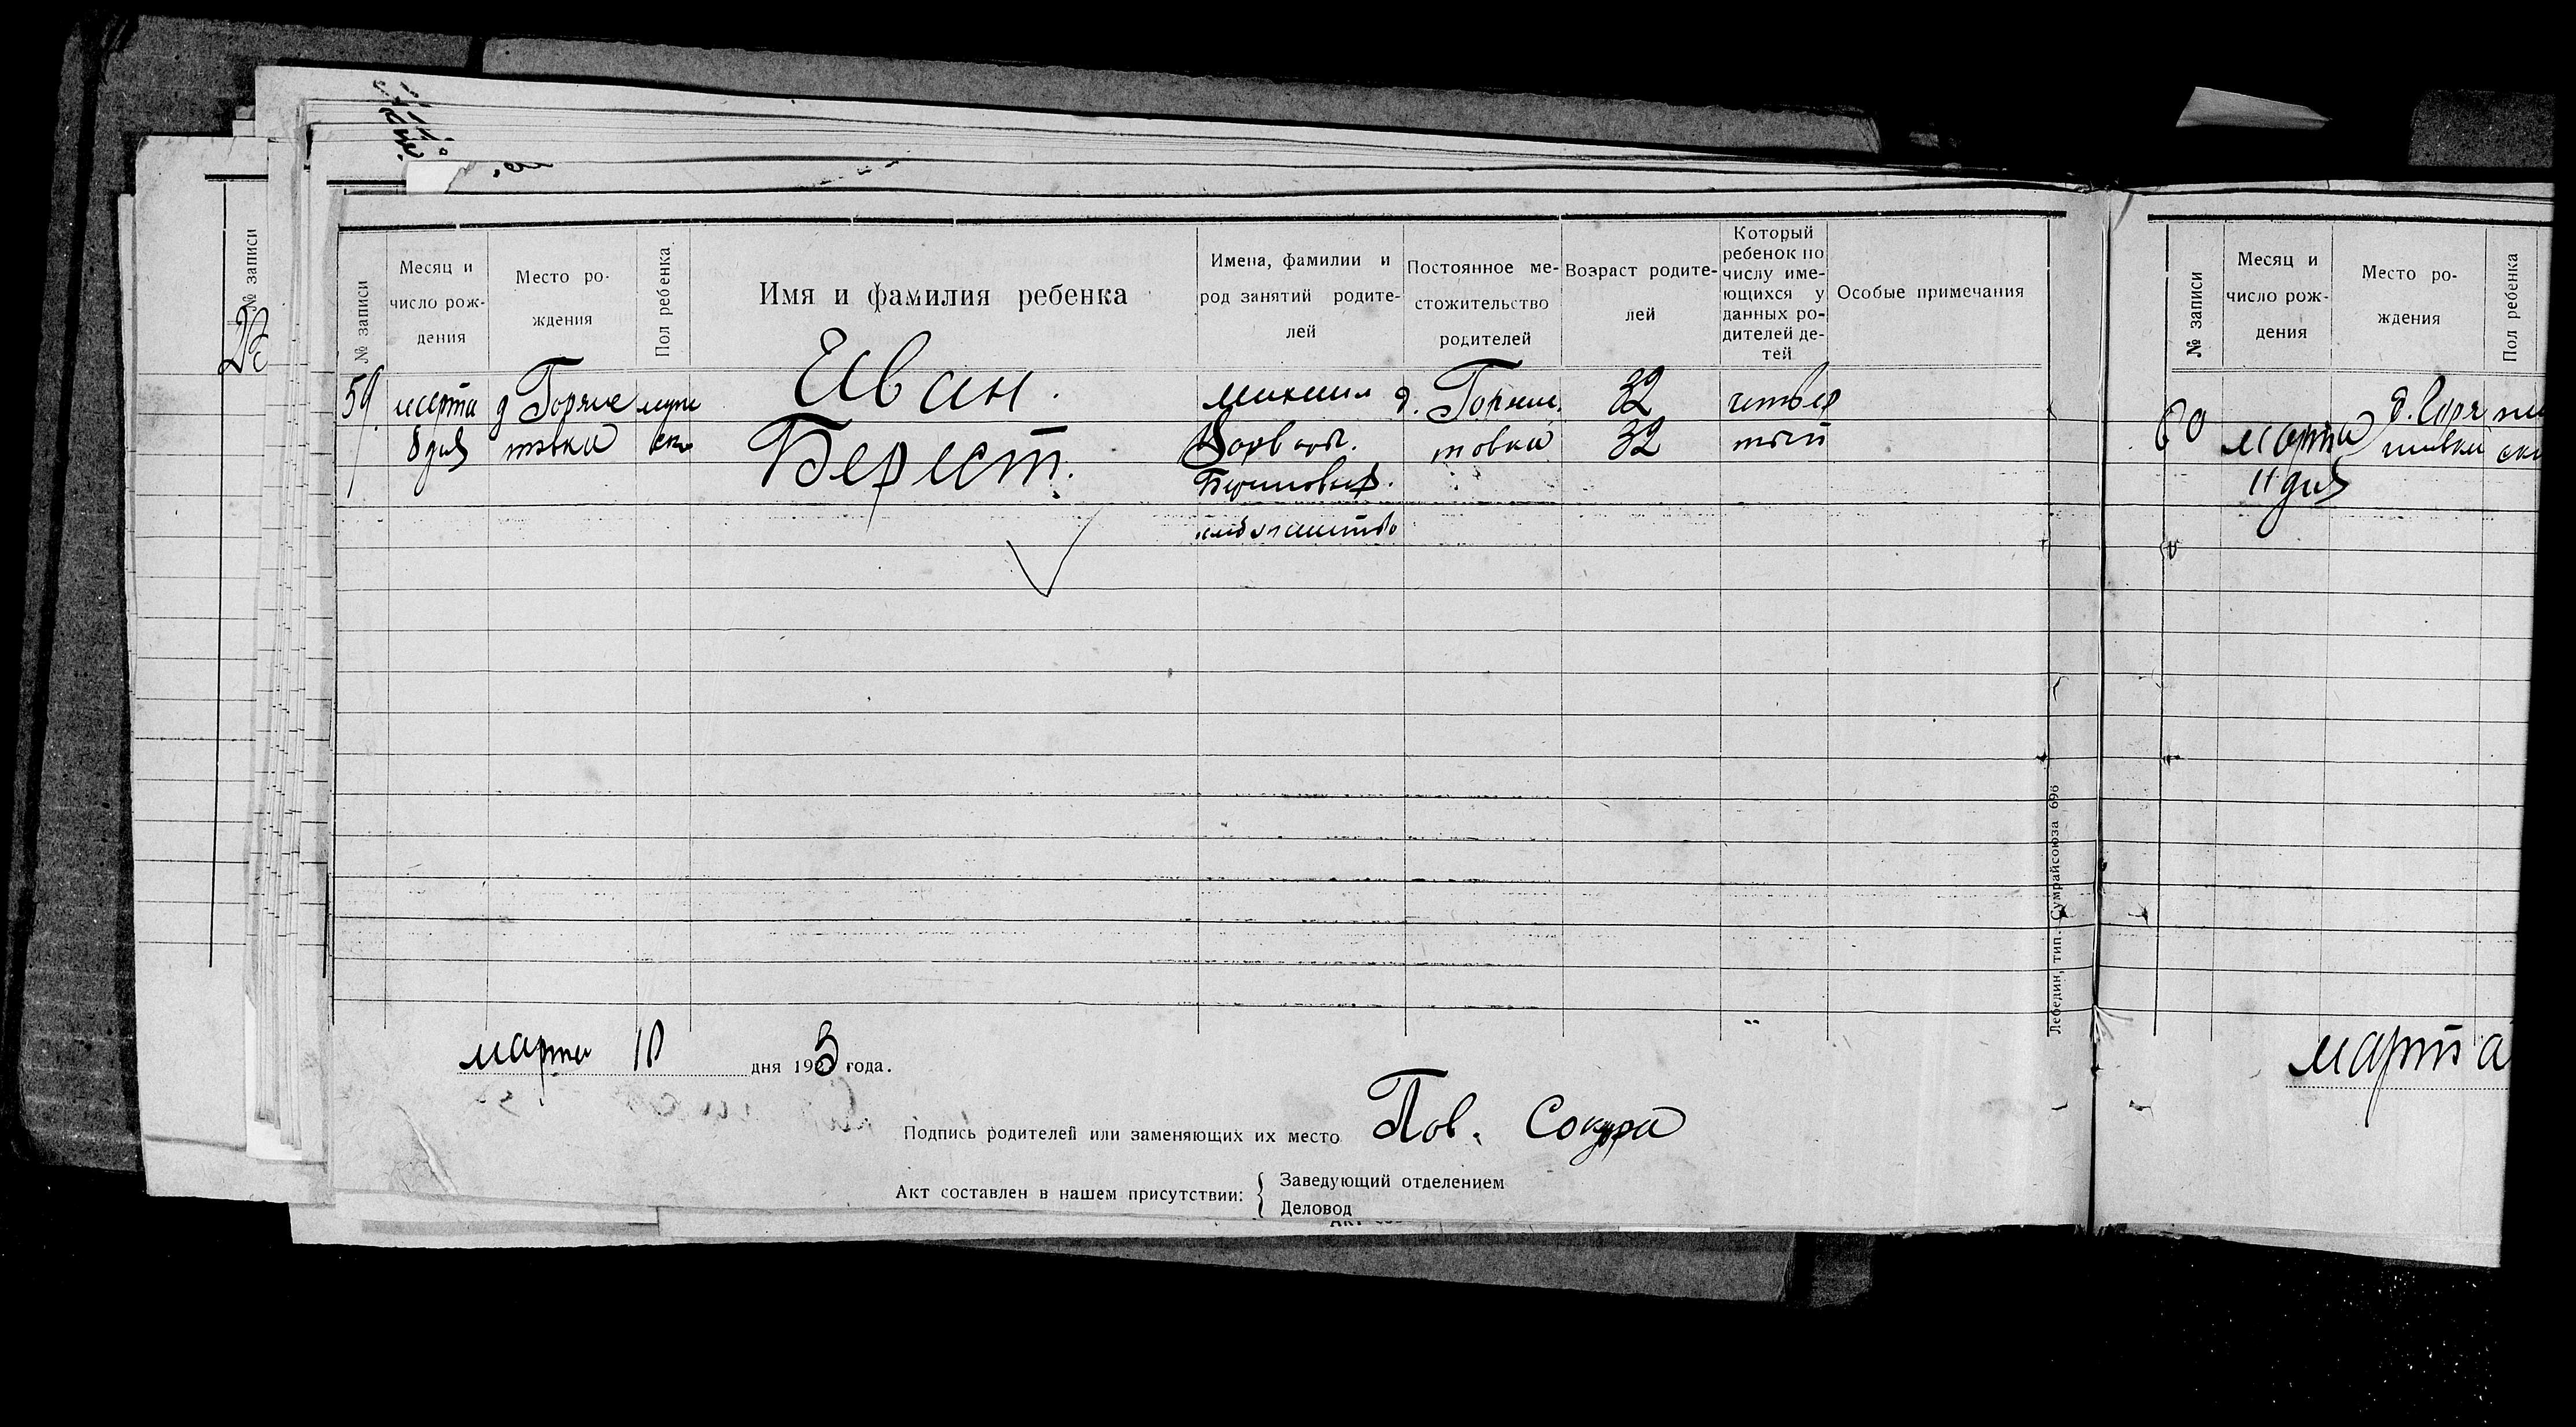 № записи
Месяц и число рож-дения
Место ро-ждения
Пол ребенка
Имя и фамилия ребенка
Имена, фамилии и род занятий родите-лей
Постоянное ме-стожительство родителей
Возраст родите-лей
Который ребенок по числу име-ющихся у данных ро-дителей де-тей
Особые примечания
59
марта
8 дня
д
товка
муж
ско
Иван.
Берест.
Варвары.
д.
товка
32
32
четвер
тый
марта 10 дня 1923 года.
Подпись родителей или заменяющих их место Пов. Сокура
Акт составлен в нашем присутствии:
Заведующий отделением
Деловод
Лебедин, тип. Сумрайсоюза 696
№ записи
№ записи
Месяц и число рож-дения
Место ро-ждения
Пол ребенка
60
марта
11 дня
д.
ско
марта